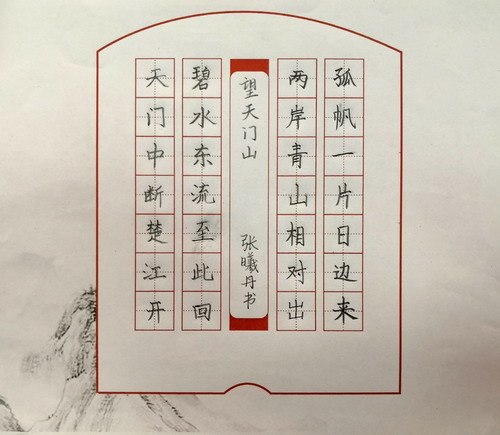 天门中断楚江开
碧水东流至此回
望天门山
张曦丹书
两岸青山相对出
孤帆一片日边来